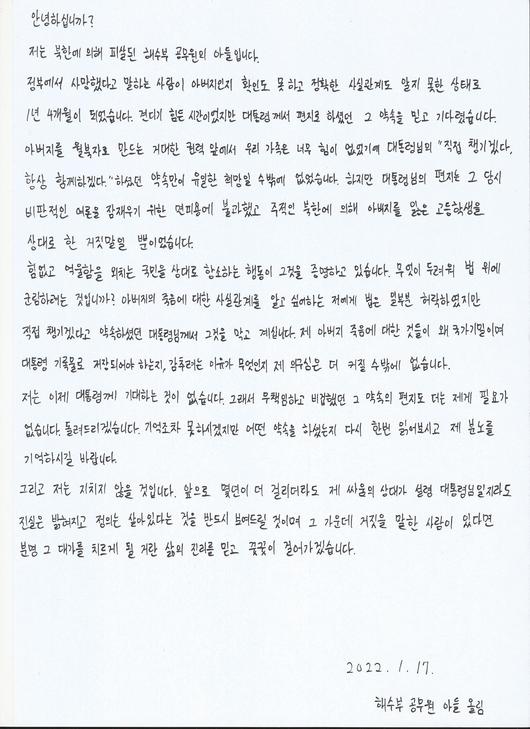 안녕하십니까?
저는 북한에 의해 피살된 해수부 공무원의 아들입니다.
정부에서 사망했다고 말하는 사람이 아버지인지 확인도 못 하고 정확한 사실관계도 알지 못한 상태로
1년 4개월이 되었습니다. 견디기 힘든 시간이었지만 대통령께서 편지로 하셨던 그 약속을 믿고 기다렸습니다.
아버지를 월북자로 만드는 거대한 권력 앞에서 우리 가족은 너무 힘이 없었기에 대통령님의 "직접 챙기겠다,
항상 함께하겠다."하셨던 약속만이 유일한 희망일 수밖에 없었습니다. 하지만 대통령님의 편지는 그 당시
비판적인 여론을 잠재우기 위한 면피용에 불과했고 주적인 북한에 의해 아버지를 잃은 고등학생을
상대로 한 거짓말일 뿐이었습니다.
힘없고 억울함을 외치는 국민을 상대로 항소하는 행동이 그것을 증명하고 있습니다. 무엇이 두려워 법 위에
군림하려는 것입니까? 아버지의 죽음에 대한 사실관계를 알고 싶어하는 저에게 법은 일부분 허락하였지만
직접 챙기겠다고 약속하셨던 대통령님께서 그것을 막고 계십니다. 제 아버지 죽음에 대한 것들이 왜 국가기밀이며
대통령 기록물로 저장되어야 하는지, 감추려는 이유가 무엇인지 제 의구심은 더 커질 수밖에 없습니다.
저는 이제 대통령께 기대하는 것이 없습니다. 그래서 무책임하고 비겁했던 그 약속의 편지도 더는 제게 필요가
없습니다. 돌려드리겠습니다. 기억조차 못하시겠지만 어떤 약속을 하셨는지 다시 한번 읽어보시고 제 분노를
기억하시길 바랍니다.
그리고 저는 지치지 않을 것입니다. 앞으로 몇년이 더 걸리더라도 제 싸움의 상대가 설령 대통령님일지라도
진실은 밝혀지고 정의는 살아있다는 것을 반드시 보여드릴 것이며 그 가운데 거짓을 말한 사람이 있다면
분명 그 대가를 치르게 될 거란 삶의 진리를 믿고 꿋꿋이 걸어가겠습니다.
2022. 1. 17.
해수부 공무원 아들 올림